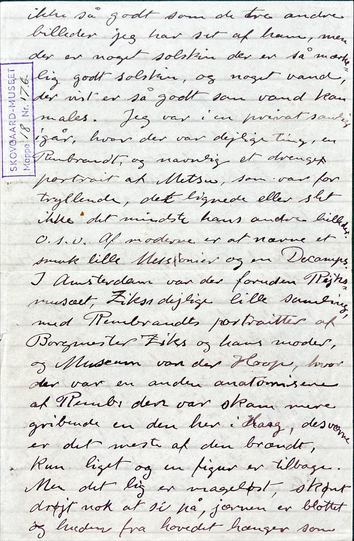 ikke så godt som de tre andre
billeder jeg har set af ham, men
der er noget solskin der er så mærke-
lig godt solskin, og noget vand,
der vil er så godt som vand kan
males. Jeg var i en privat samling
igår, hvor der var dejlige ting, en
Rembrandt, og navnlig et drenge
portrait af Metsu, som var for
tryllende, det lignede eller slet
ikke det mindste hans andre billeder
o.s.v. Af moderne er at nævne et
smuk lille Messonier og en Decamps
I Amsterdam var der foruden Rijks-
musæet, Zikss dejlige lille samling,
med Rembrandts portraitter af
Borgmester Ziks og hans moder,
og Museum van der Hoop, hvor
der var en anden anatomisene
af Remb: den var skam mere
gribende en den her i Haag, desværre
er det meste af den brændt,
kun liget og en figur er tilbage.
Men det lig er mageløst, skønt
drøjt nok at sé på, jærnen er blottet
og huden fra hovedet hænger som
SKOVGAARD-MUSEET
Mappe 18 Nr. 176